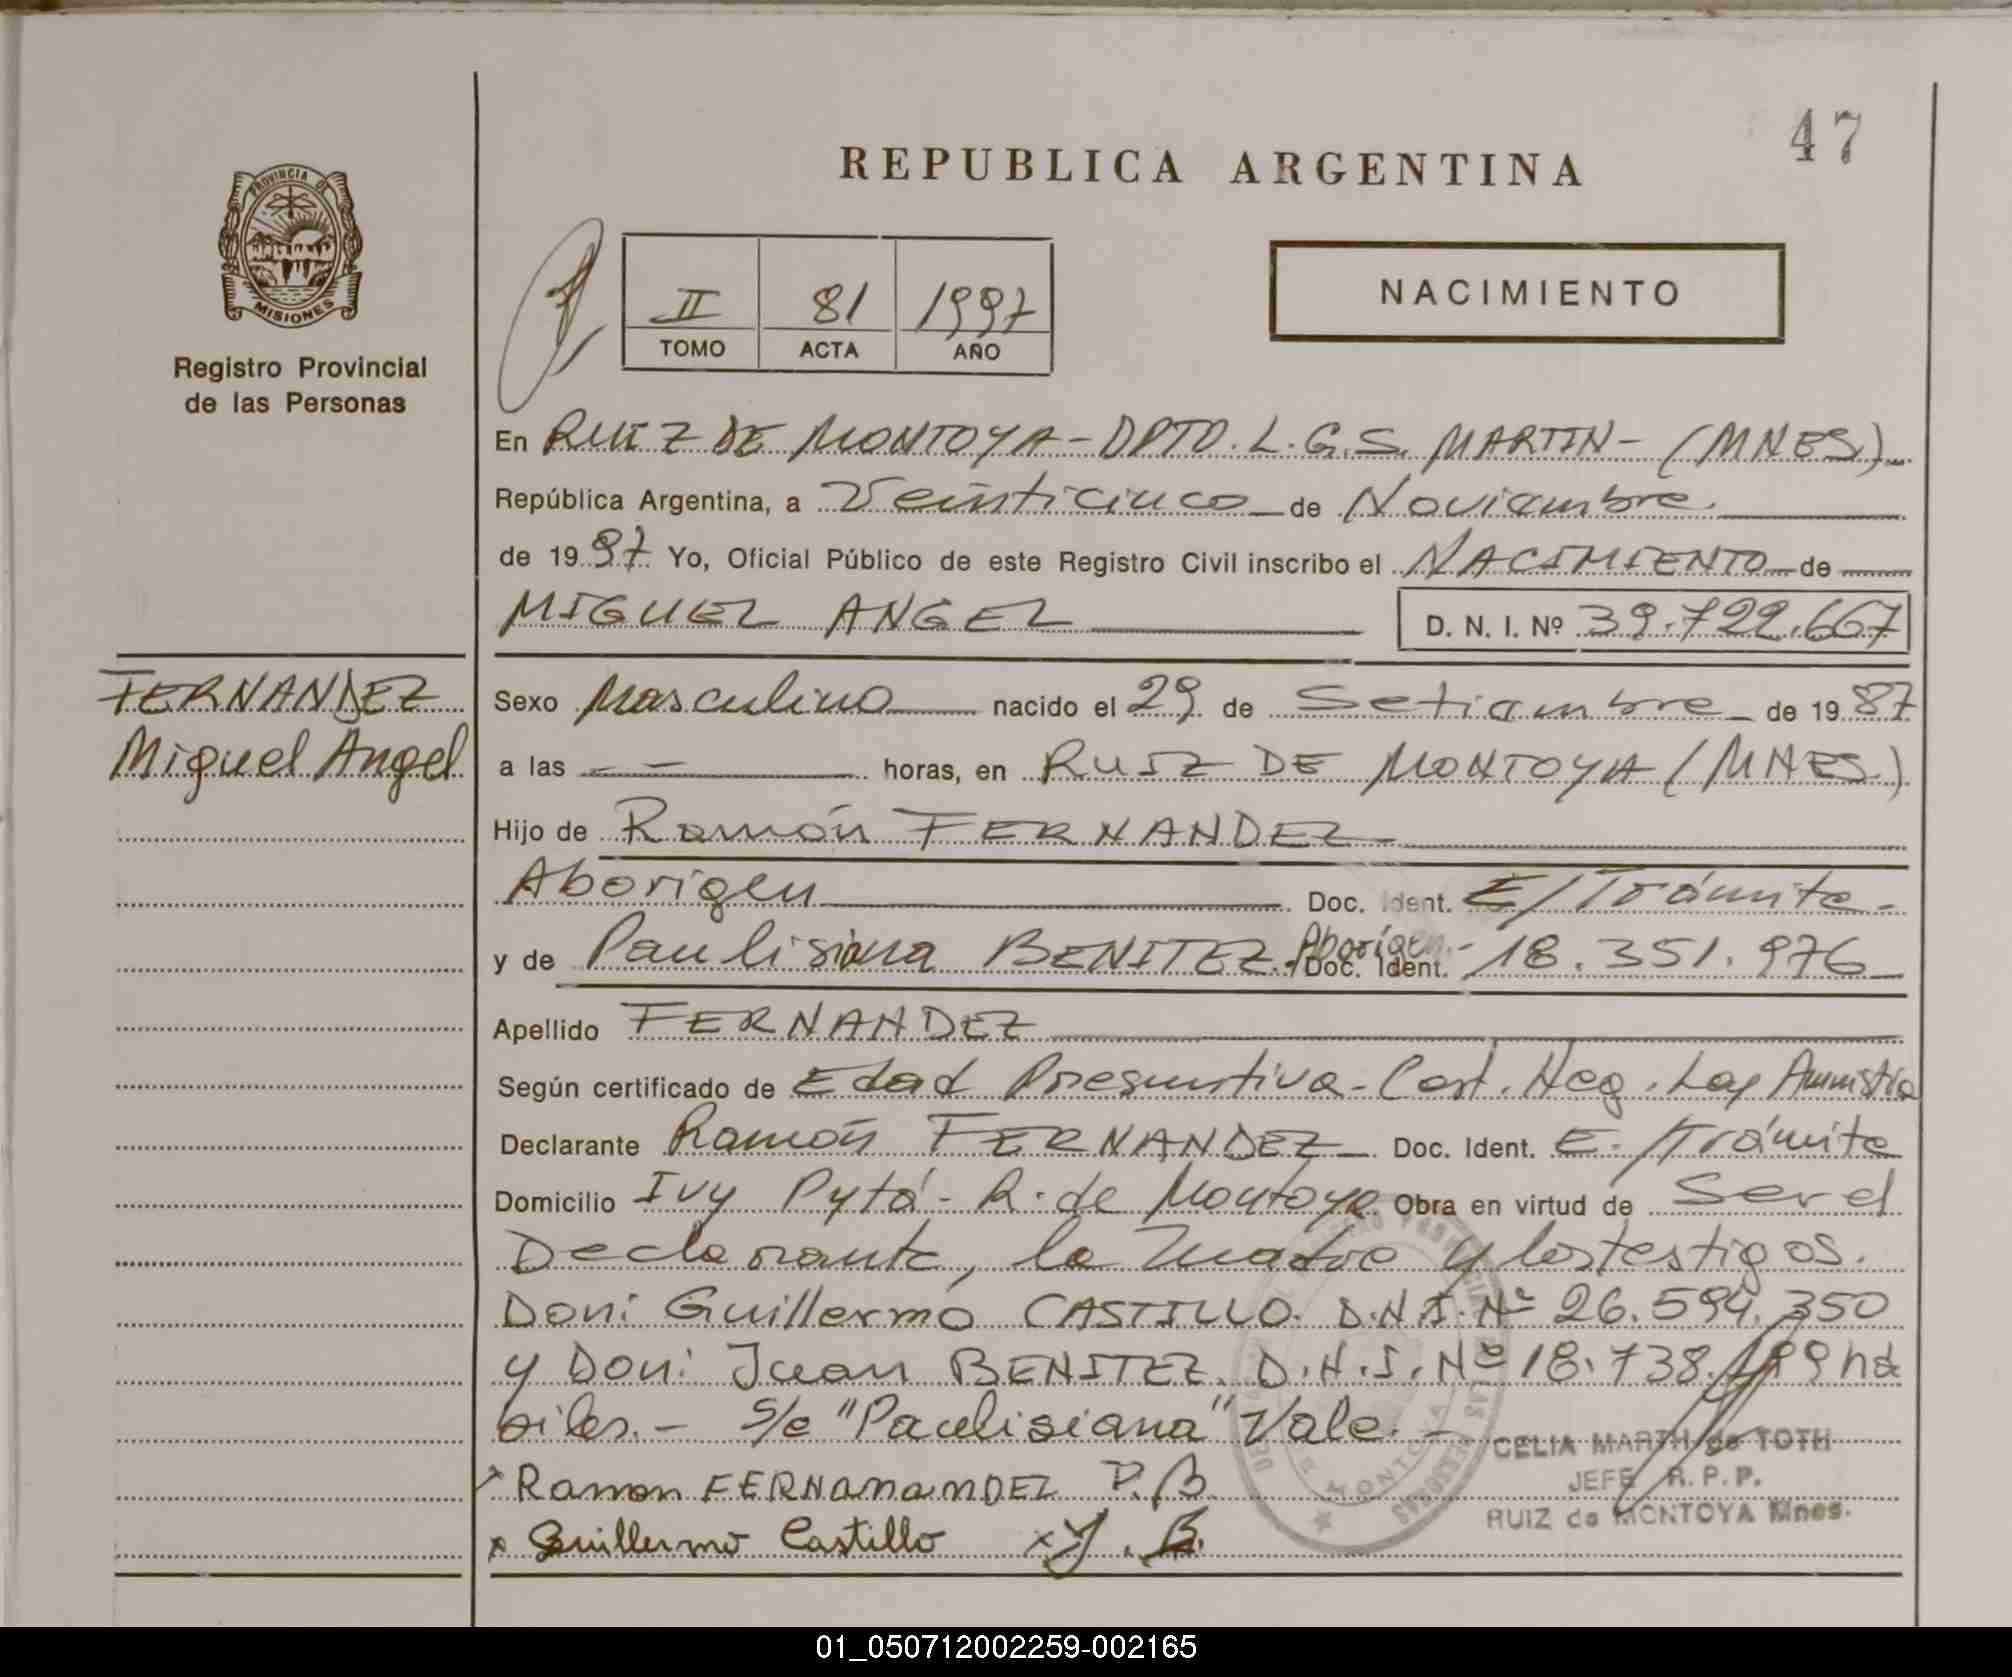 47
REPUBLICA ARGENTINA
PROVINCIA DE
MISIONES
Registro Provincial
de las Personas
II 81 1997
TOMO ACTA AÑO
NACIMIENTO
En RUIZ DE MONTOYA - DPTO. L. G. S. MARTIN - (MNES.)
República Argentina, a Veinticinco de Noviembre
de 1997. Yo, Oficial Público de este Registro Civil inscribo el NACIMIENTO de
MIGUEL ANGEL D. N. I. Nº 39.722.667
FERNANDEZ
Miguel Angel
Sexo Masculino nacido el 29 de Setiembre de 1987
a las - - horas, en RUIZ DE MONTOYA (MNES.)
Hijo de Ramón FERNANDEZ
Aborigen Doc. Ident. E/Trámite.-
y de Paulisiana BENITEZ. Aborigen.- Doc. Ident. 18.351.976
Apellido FERNANDEZ
Según certificado de Edad Presuntiva - Cert. Neg. Ley Amnistia
Declarante Ramón FERNANDEZ Doc. Ident. E./Trámite
Domicilio Ivy Pytá - R. de Montoya Obra en virtud de Ser el
Declarante, la madre y los testigos.
Don: Guillermo CASTILLO. D.N.I. Nº 26.594.350
y Don: Juan BENITEZ. D.N.I. Nº 18.738.199 há
biles.- S/e "Paulisiana" Vale.-
Ramon FERNAnanDEZ P. B.
x Guillermo Castillo x J. B.
CELIA MARTH de TOTH
JEFE R. P. P.
RUIZ de MONTOYA Mnes.
01_050712002259-002165